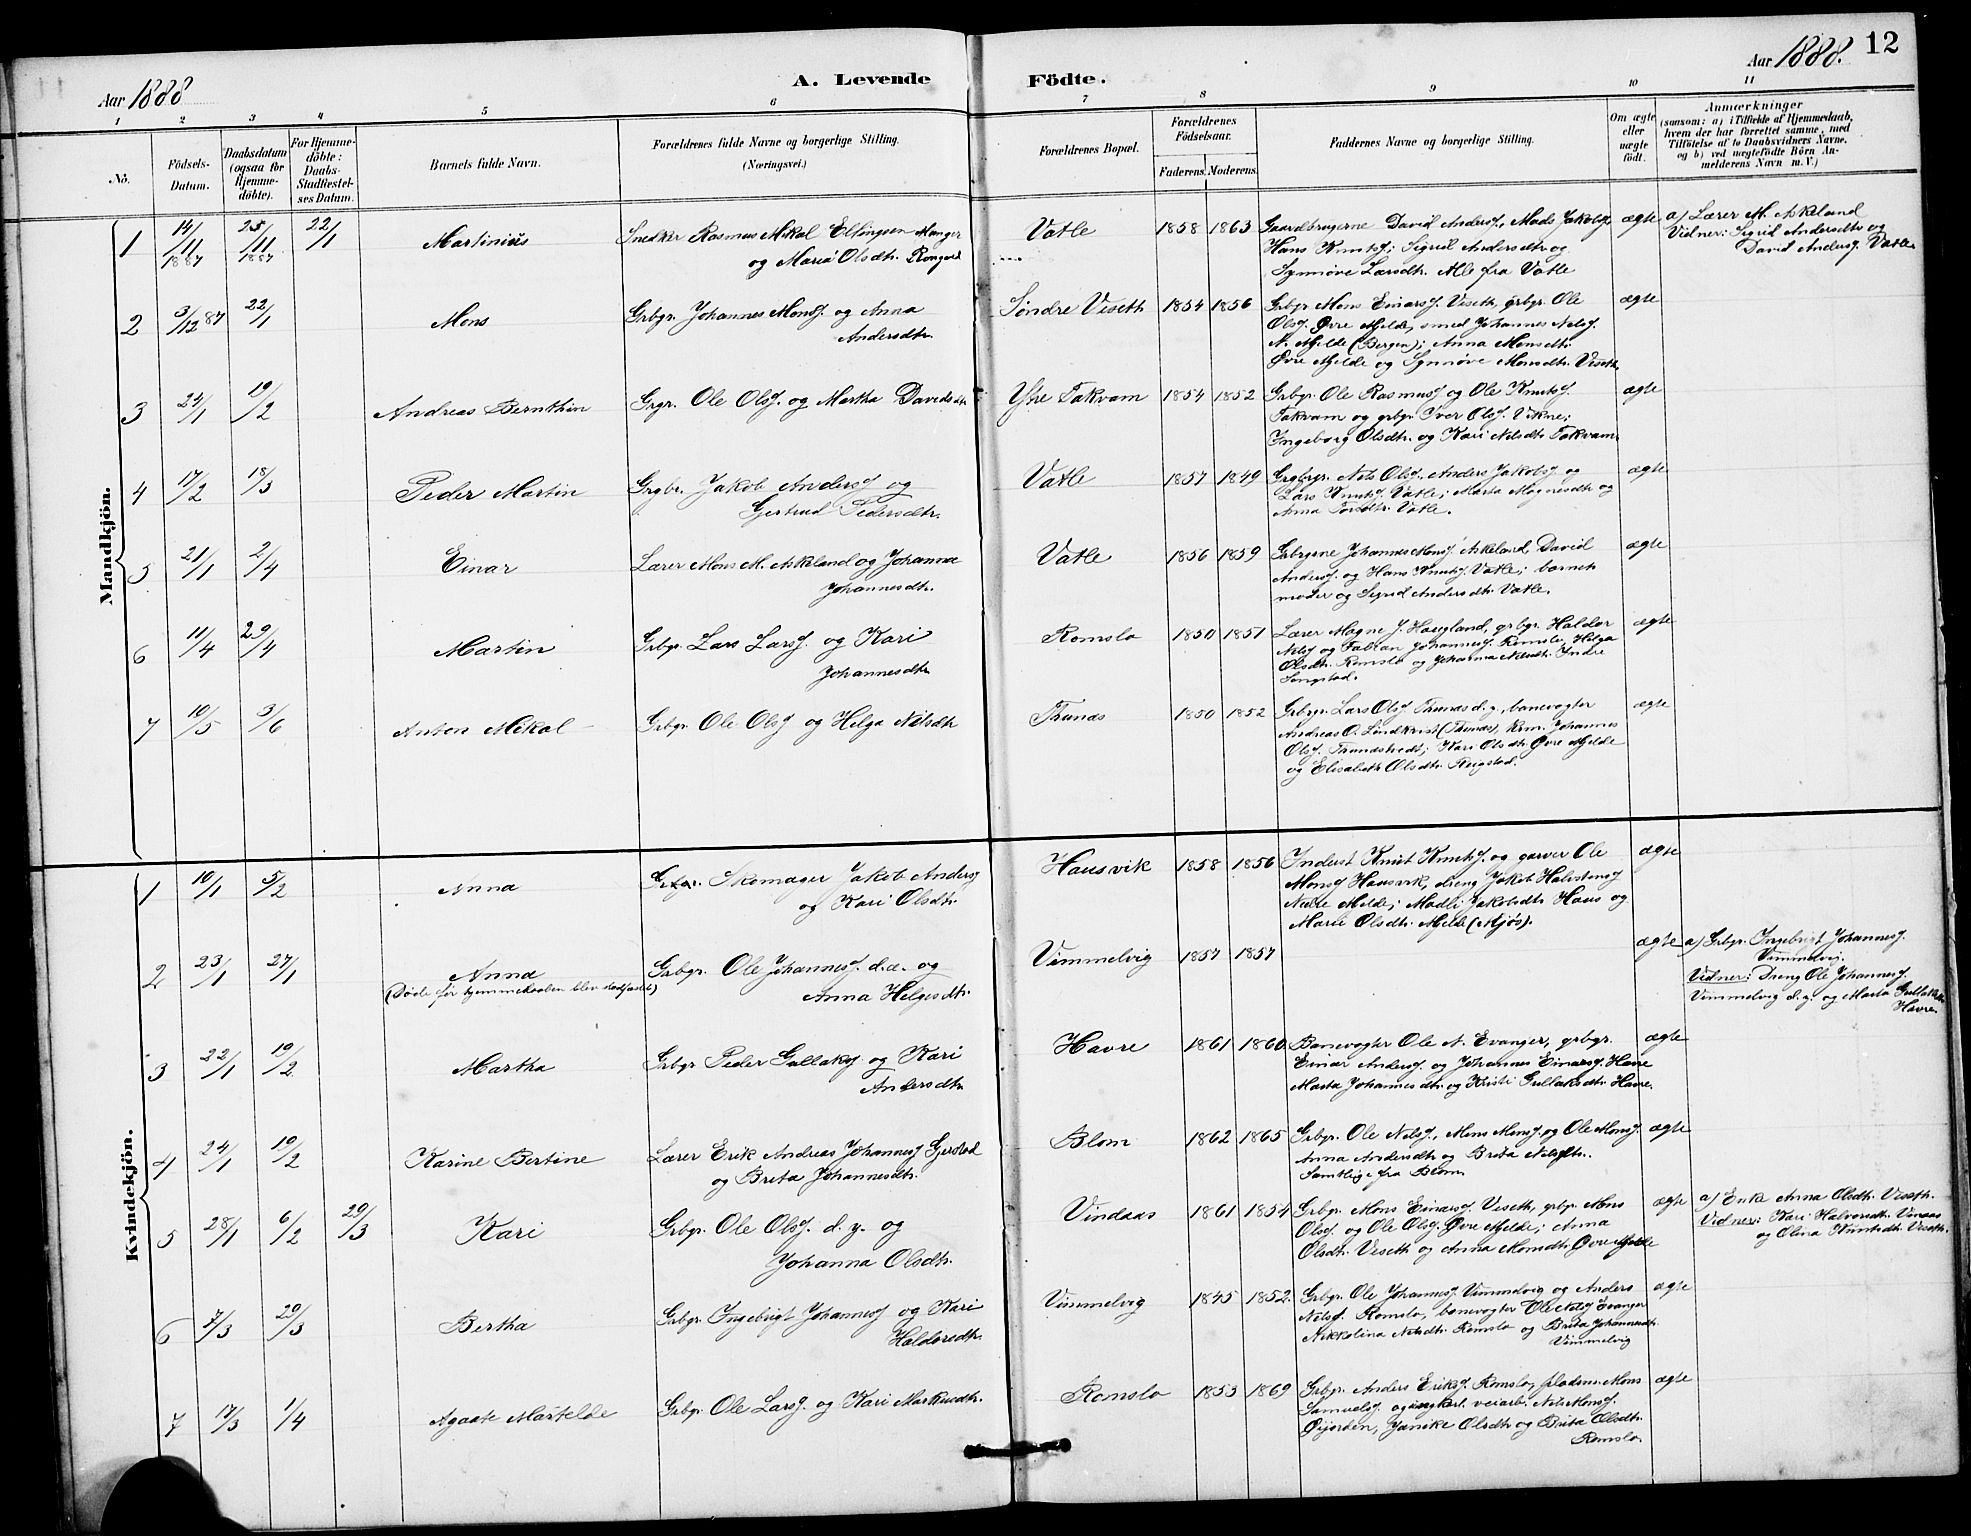 Aar 1888
A. Levende Födte.
Aar 1888.
12
1 2 3 4 5 6 7 8 9 10 11
No.
Födsels-Datum.
Daabsdatum (ogsaa for Hjemmedöbte).
For Hjemmedöbte: Daabs-Stadfæstelses Datum.
Barnets fulde Navn.
Forældrenes fulde Navne og borgerlige Stilling.
(Næringsvei.)
Forældrenes Bopæl.
Forældrenes Födselsaar.
Faderens. Moderens.
Faddernes Navne og borgerlige Stilling.
Om ægte eller uægte födt.
Anmærkninger
(saasom: a) i Tilfælde af Hjemmedaab,
hvem der har forrettet samme, med
Tilföielse af to Daabsvidners Navne.
og b) ved uægtefödte Börn Anmelderens Navn m. V.)
Mandkjön.
1 14/11 1887 25/11 1887 22/1 Martinius
Snedker Rasmus Mikal Ellingsen Manger
og Maria Olsdtr.
Vatle 1858 1863
Gaardbrugerne David Andersf., Mads Jakobsf.
Hans Knutsf; Sigrid Andersdtr og
Synnöve Larsdtr. Alle fra Vatle
ægte
a) Lærer M. Askeland
Vidner: Sigrid Andersdtr og
David Andersf. Vatle
2 3/12 87 22/1 Mons
Grbgr. Johannes Monsf. og Anna
Andersdtr.
Söndre Viseth 1854 1856
Grbgr Mons Einarsf. Viseth, grbgr. Ole
Olsf. Øvre Mjelde, smed Johannes Nelsf.
N. Mjelde (Bergen); Anna Monsdtr.
Øvre Mjelde og Synnöve Monsdtr. Viseth
ægte
3 24/1 19/2 Andreas Bernthin
Grgr. Ole Olsf. og Martha Davidsdtr
Ytre Takvam 1854 1852
Grbgr. Ole Rasmusf og Ole Knutsf.
Takvam og grbgr. Iver Olsf. Vikne;
Ingeborg Olsdtr. og Kari Nilsdtr Takvam
ægte
4 17/2 18/3 Peder Martin
Grgbr. Jakob Andersf og
Gjertrud Pedersdtr.
Vatle 1857 1849
Grgbrgr. Nels Olsf. Anders Jakobsf og
Lars Knutsf. Vatle; Marta Magnesdtr og
Anna Torsdtr. Vatle.
ægte
5 21/1 2/4 Einar
Lærer Mons M. Askeland og Johanna
Johannesdtr.
Vatle 1856 1859
Grbrgrne Johannes Monsf Askeland, David
Andersf. og Hans Knutsf. Vatle; barnets
moder og Sigrid Andersdtr. Vatle.
ægte
6 11/4 29/4 Martin
Grbgr. Lars Larsf. og Kari
Johannesdtr
Romslo 1850 1851
Lærer Magne J. Haugland, grbgr. Haldor
Nelsf og Fabian Johannesf. Romslo, Helga
Olsdtr. Romslo og Johanna Nelsdtr. Indre
Songstad.
ægte
7 10/5 3/6 Anton Mikal
Grbgr. Ole Olsf og Helga Nilsdtr
Thunæs 1850 1852
Grbgr. Lars Olsf. Thunæs d.y., banevogter
Andreas O. Lindkvist (Thunæs), Johannes
Olsf. Kari Olsdtr. Øvre Mjelde
og Elisabeth Olsdtr. Reigstad.
ægte
Kvindekjön.
1 10/1 5/2 Anna
Grbgr. Skomager Jakob Andersf
og Kari Olsdtr.
Hausvik 1858 1856
Inderst Knut Knutsf. og garver Ole
Monsf Hausvik, dreng Jakob Halstensf
Nedre Mjelde; Madli Jakobsdtr Haus og
Marie Olsdtr. Mjelde (Mjøs).
ægte
2 23/1 27/1 Anna
(Døde før hjemmedaaben blev stadfæstet)
Grbgr. Ole Johannesf. d.æ. og
Anna Helgesdtr.
Vimmelvig 1857 1857
ægte
a) Grbgr. Ingebrigt Johannesf.
Vimmelvig.
Vidner: Dreng Ole Johannesf.
Vimmelvig d.y. og Marta Gullaksdtr
Havre
3 22/1 19/2 Martha
Grbgr Peder Gullaksf og Kari
Andersdtr
Havre 1861 1860
Banevogter Ole N. Evanger, grbgr.
Einar Andersf og Johannes Einarsf. Havre
Marta Johannesdtr og Kristi Gullaksdtr Havre.
ægte
4 24/1 19/2 Karine Bertine
Lærer Erik Andreas Johannesf Gjerstad
og Brita Johannesdtr.
Blom 1862 1865
Grbgr. Ole Nelsf., Mons Monsf og Ole Monsf
Anna Andersdtr og Brita Nelsdtr.
Samtlige fra Blom
ægte
5 28/1 6/2 29/3 Kari
Grbgr. Ole Olsf. d.y. og
Johanna Olsdtr.
Vindaas 1861 1854
Grbgr. Mons Einarsf. Viseth, grbgr. Mons
Olsf. og Ole Olsf. Øvre Mjelde; Anna
Olsdtr. Viseth og Anna Monsdtr. Øvre Mjelde
ægte
a) Enke Anna Olsdtr. Viseth.
Vidner: Kari Halvorsdtr. Vindaas
og Olina Knutsdtr. Viseth.
6 7/3 29/3 Bertha
Grbgr. Ingebrigt Johannesf og Kari
Haldorsdtr.
Vimmelvig 1845 1852.
Grbgr. Ole Johannesf Vimmelvig og Anders
Nelsf. Romslo, banevogter Ole Nelsf Evanger
Nikkolina Nelsdtr. Romslo og Brita Johannesdtr
Vimmelvig
ægte
7 17/3 1/4 Agaate Martelde
Grbgr. Ole Larsf. og Kari Markusdtr.
Romslo 1853 1869
Grbgr. Anders Eriksf. Romslo, pladsm. Mons
Samuelsf. og ungkarl, veiarb. Nils Monsf.
Øijorden, Janike Olsdtr og Brita Olsdtr.
Romslo.
ægte